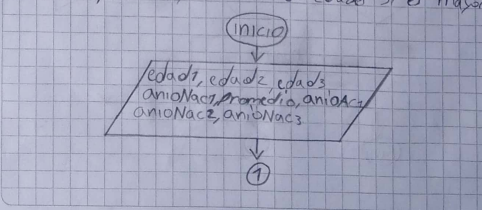 edad si es mayor
inicio
edad1, edad2, edad3
anioNac1, promedio, anioAc,
anioNac2, anioNac3
1